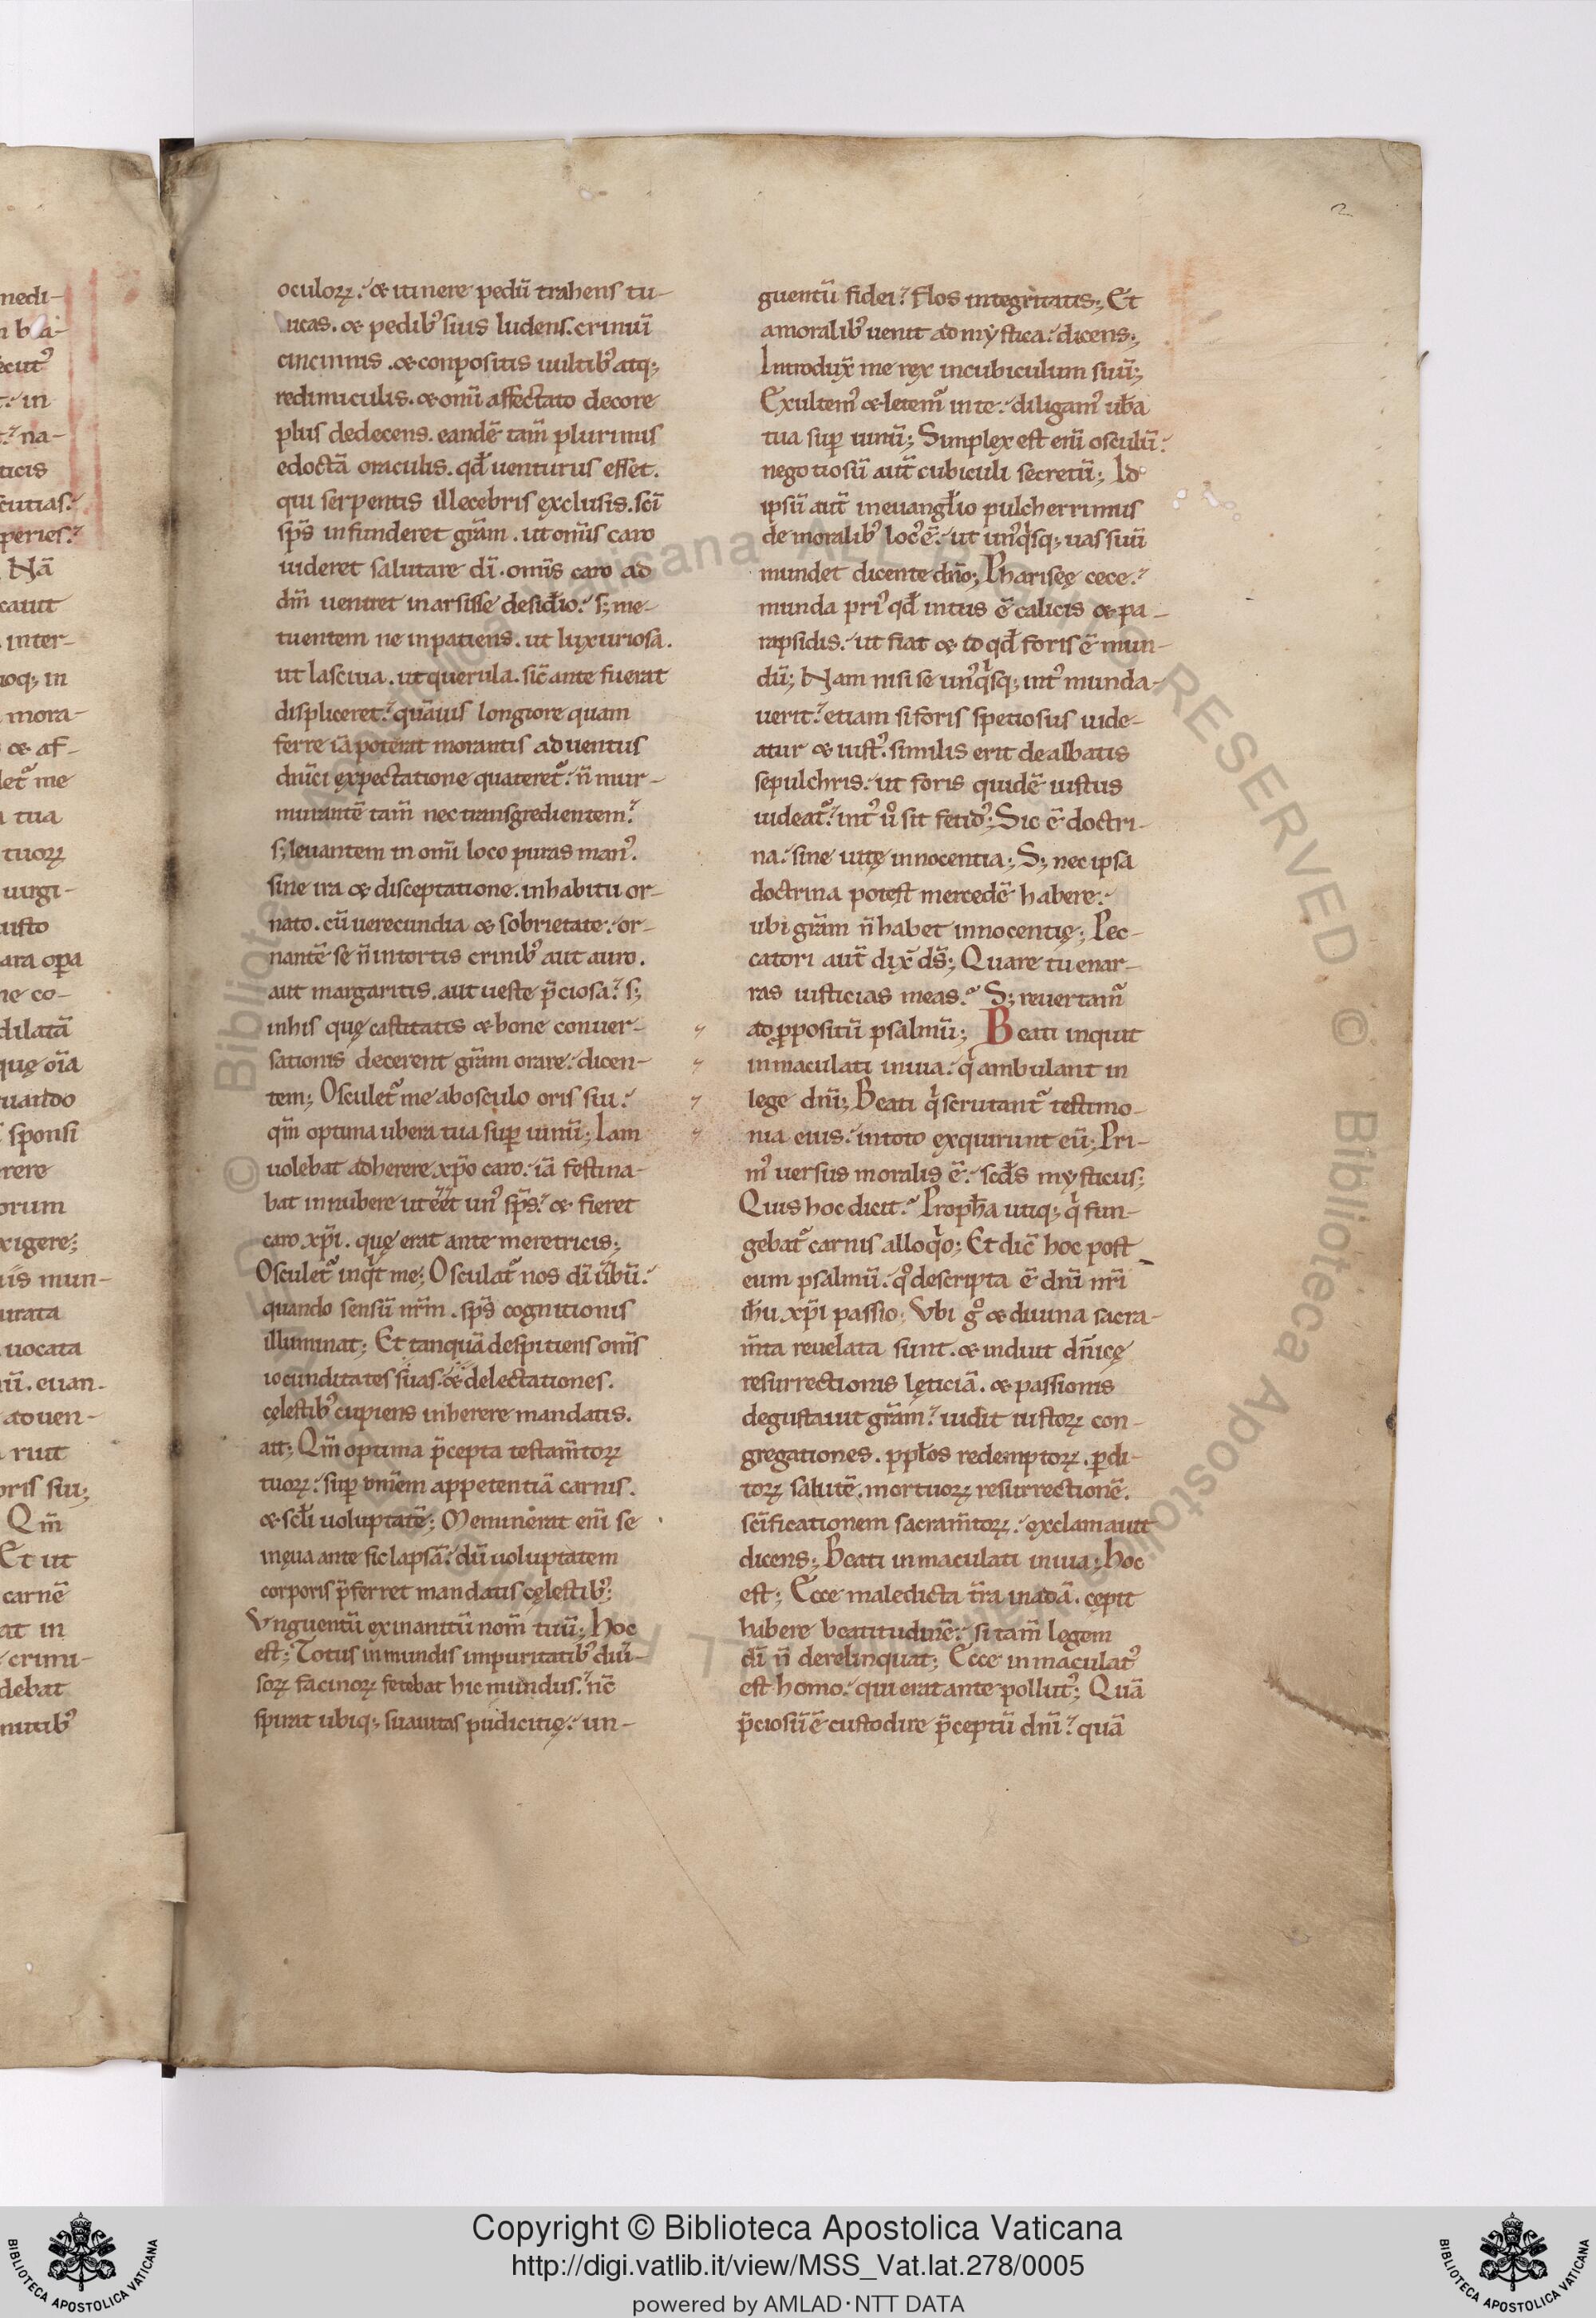 nedi-
n b a-
ecut᾽
t. in
t. na-
ticis
scutias.
peries.
Nā
caut
inter-
uoq; in
mora-
& af-
let᷑ me
tua
tuoꝝ
uirgi-
iusto
ara op̄a
ne co-
dilatā
quę oīa
uando
sponsi
rere
orum
xigere;
is mun-
urata
uocata
iū. euan-
aduen-
ruit
oris sui;
Qm̄
Et ut
carnē
at in
crimi-
debat
nutib᾽
2
oculoꝝ. & itinere pedū trahens tu-
nicas. & pedib᾽ suis ludens. crinuī
cincinnis. & conpositis uultib᾽ atq;
redimiculis. & onū affectato decore
plus dedecens. eandē tam̄ plurimis
edoctā oraculis. qđ uenturus esset.
qui serpentis illecebris exclusis. scī
sp̄s infunderet grām. ut onīs caro
uideret salutare dī. omīs caro ad
dm̄ ueniret inarsisse desiđio. s; me-
tuentem ne inpatiens. ut luxuriosa.
ut lasciua. ut querula. sic̄ ante fuerat
displiceret. quāuis longiore quam
ferre iā poterat morantis aduentus
dn̄ici expectatione quateret᷑. n̄ mur-
murantē tam̄ nec transgredientem.
s; leuantem in omī loco puras man᾽.
sine ira & disceptatione. in habitu or-
nato. cū uerecundia & sobrietate. or-
nantē se n̄ intortis crinib᾽ aut auro.
aut margaritis. aut ueste p̄ciosa. s;
inhis quę castitatis & bone conuer-
sationis decerent grām orare. dicen-
tem; Osculet᷑ me abosculo oris sui.
qm̄ optima ubera tua sup̄ uinū; Iam
uolebat adherere xp̄o caro. iā festina-
bat innubere ut eēt un᾽ sp̄s. & fieret
caro xp̄i. quę erat ante meretricis;
Osculet᷑ inqͥt me; Osculat᷑ nos dī ūbū.
quando sensū nr̄m. sp̄s cognitionis
illuminat; Et tanquā despitiens om̄s
iocunditates suas. & delectationes.
cęlestib᾽ cupiens inherere mandatis.
ait; Qm̄ optima p̄cepta testam̄toꝝ
tuoꝝ. sup̄ om̄em appetentiā carnis.
& scl̄i uoluptatē; Meminerat enī se
in ęua ante sic lapsā. dū uoluptatem
corporis p̄ferret mandatis cęlestib᾽;
Vnguentū exinanitū nom̄ tuū; Hoc
est; Totus inmundis impuritatib᾽ diui-
soꝝ facinoꝝ fetebat hic mundus. nc̄
spirat ubiq; suauitas pudicitię. un-
guentū fidei. flos integritatis; Et
a moralib᾽ uenit ad mystica. dicens;
Introdux̄ me rex incubiculum suū;
Exultem᾽ & letem᷑ inte. diligam᾽ uƀa
tua sup̄ uinū; Simplex est enī osculū.
negotiosū aut̄ cubiculi secretū; Id
ipsū aut̄ ineuangl̄io pulcherrimus
de moralib᾽ loc᾽ ē. ut un᾽qͥsq; uas suū
mundet dicente dn̄o; Pharisęe cece.
munda pri᾽ qđ intus ē calicis & pa-
rapsidis. ut fiat & id qđ foris ē mun-
dū; Nam nisi se un᾽qͥsq; int᾽ munda-
uerit. etiam si foris spetiosus uide-
atur & iust᾽. similis erit dealbatis
sepulchris. ut foris quidē iustus
uideat᷑. int᾽ uͦ sit fetid᾽; Sic ē doctri-
na. sine uitę innocentia; S; nec ipsa
doctrina potest mercedē habere.
ubi grām n̄ habet innocentię; Pec-
catori aut̄ dix̄ ds̄; Quare tu enar-
ras iusticias meas. S; reuertam᷑
ad ꝓpositū psalmū; Beati inquit
inmaculati inuia. qͥ ambulant in
lege dn̄i; Beati qͥ scrutant᷑ testimo-
nia eius. intoto exquirunt eū; Pri-
m᾽ uersus moralis ē. scđs mysticus;
Quis hoc dicit. Proph̄a utiq; qͥ fun-
gebat᷑ carnis alloqͥo; Et dic̄ hoc post
eum psalmū. qͦ descripta ē dn̄i nr̄i
ih̄u xp̄i passio; Vbi gͦ & diuina sacra-
m̄ta reuelata sunt. & induit dn̄icę
resurrectionis lęticiā. & passionis
degustauit grām. uidit iustoꝝ con-
gregationes. ppl̄os redemptoꝝ. ꝑdi-
toꝝ salutē. mortuoꝝ resurrectionē.
sc̄ificationem sacram̄toꝝ. exclamauit
dicens; Beati inmaculati inuia; Hoc
est; Ecce maledicta tr̄a inadā. cępit
habere beatitudinē. si tam̄ legem
dī n̄ derelinquat; Ecce inmaculat᾽
est homo. qui erat ante pollut᾽; Quā
p̄ciosū ē custodire p̄ceptū dn̄i. quā
Copyright © Biblioteca Apostolica Vaticana
http://digi.vatlib.it/view/MSS_Vat.lat.278/0005
powered by AMLAD·NTT DATA